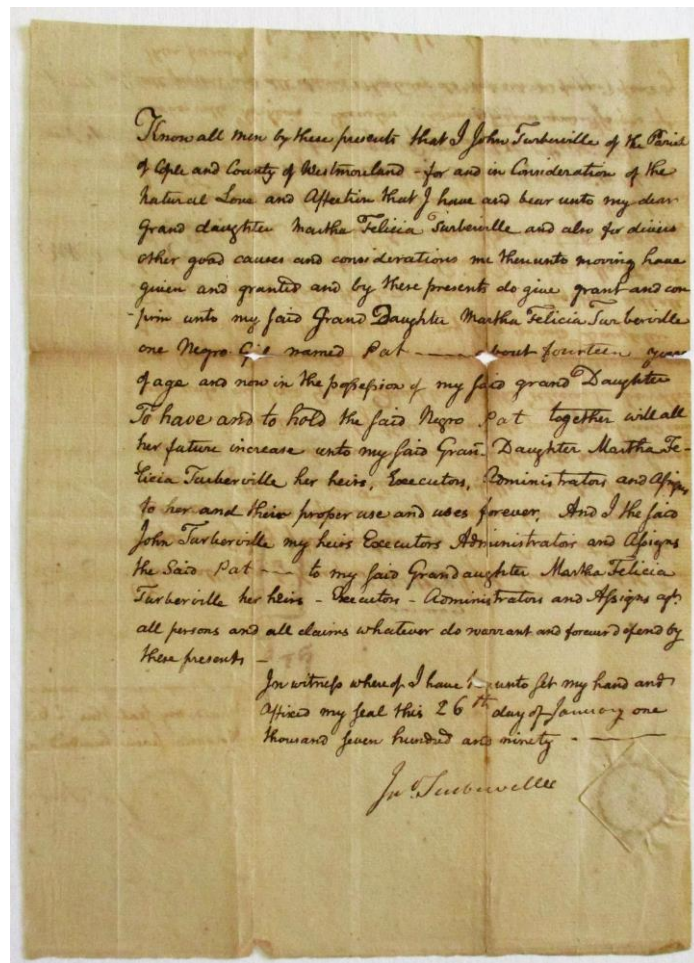 Know all men by these presents that I John Turberville of the Parish
of Cople and County of Westmoreland - for and in Consideration of the
Natural Love and Affection that I have and bear unto my dear
Grand daughter Martha Felicia Turberville and also for divers
other good causes and considerations me thereunto moving have
given and granted and by these presents do give grant and con
-firm unto my said Grand Daughter Martha Felicia Turberville
one Negro named Pat ---- bout fourteen years
of age and now in the possession of my said grand Daughter
To have and to hold the said Negro Pat together will all
her future increase unto my said Gran Daughter Martha Fe-
licia Turberville her heirs, Executors, Administrators and Assigns
to her and their proper use and uses forever, And I the said
John Turberville my heirs Executors Administrator and Assigns
the Said Pat --- to my said Grandaughter Martha Felicia
Turberville her heirs - Executors - Administrators and Assigns agt.
all persons and all claims whatever do warrant and forever defend by
these presents -
In witness whereof I have unto set my hand and
Affixed my seal this 26th day of January one
thousand seven hundred and ninety - ----
Jno. Turberville